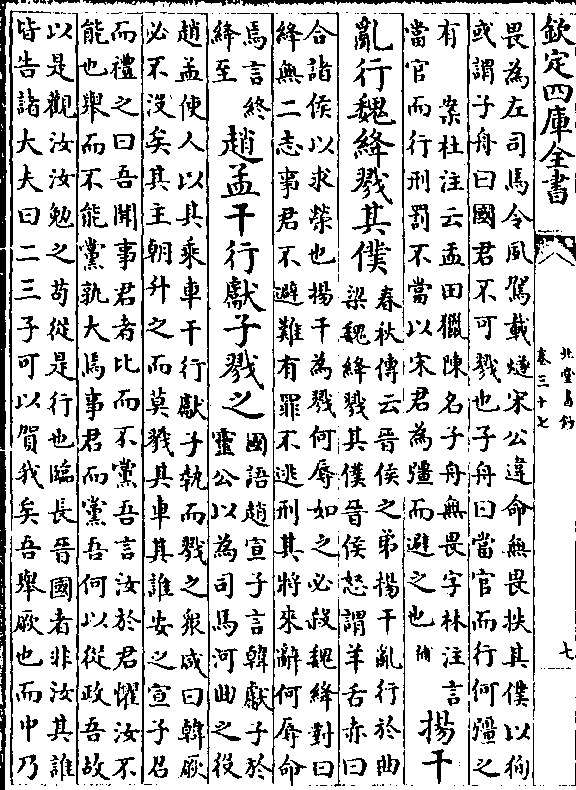 欽定四庫全書
北堂書鈔
卷三十七
七
畏為左司馬令夙駕載燧宋公違命無畏抶其僕以徇
或謂子舟曰國君不可戮也子舟曰當官而行何彊之
有 案杜注云孟田獵陳名子舟無畏字林注言
當官而行刑罰不當以宋君為彊而避之也 補
揚干
亂行魏絳戮其僕
春秋傳云晉侯之弟揚干亂行於曲
梁魏絳戮其僕晉侯怒謂羊舌赤曰
合諸侯以求榮也揚干為戮何辱如之必殺魏絳對曰
絳無二志事君不避難有罪不逃刑其將來辭何辱命
焉言終
絳至
趙孟干行獻子戮之
國語趙宣子言韓獻子於
靈公以為司馬河曲之役
趙孟使人以其乘車干行獻子執而戮之衆咸曰韓厥
必不沒矣其主朝升之而莫戮其車其誰安之宣子召
而禮之曰吾聞事君者比而不黨吾言汝於君懼汝不
能也舉而不能黨孰大焉事君而黨吾何以從政吾故
以是觀汝汝勉之苟從是行也臨長晉國者非汝其誰
皆告諸大夫曰二三子可以賀我矣吾舉厥也而中乃